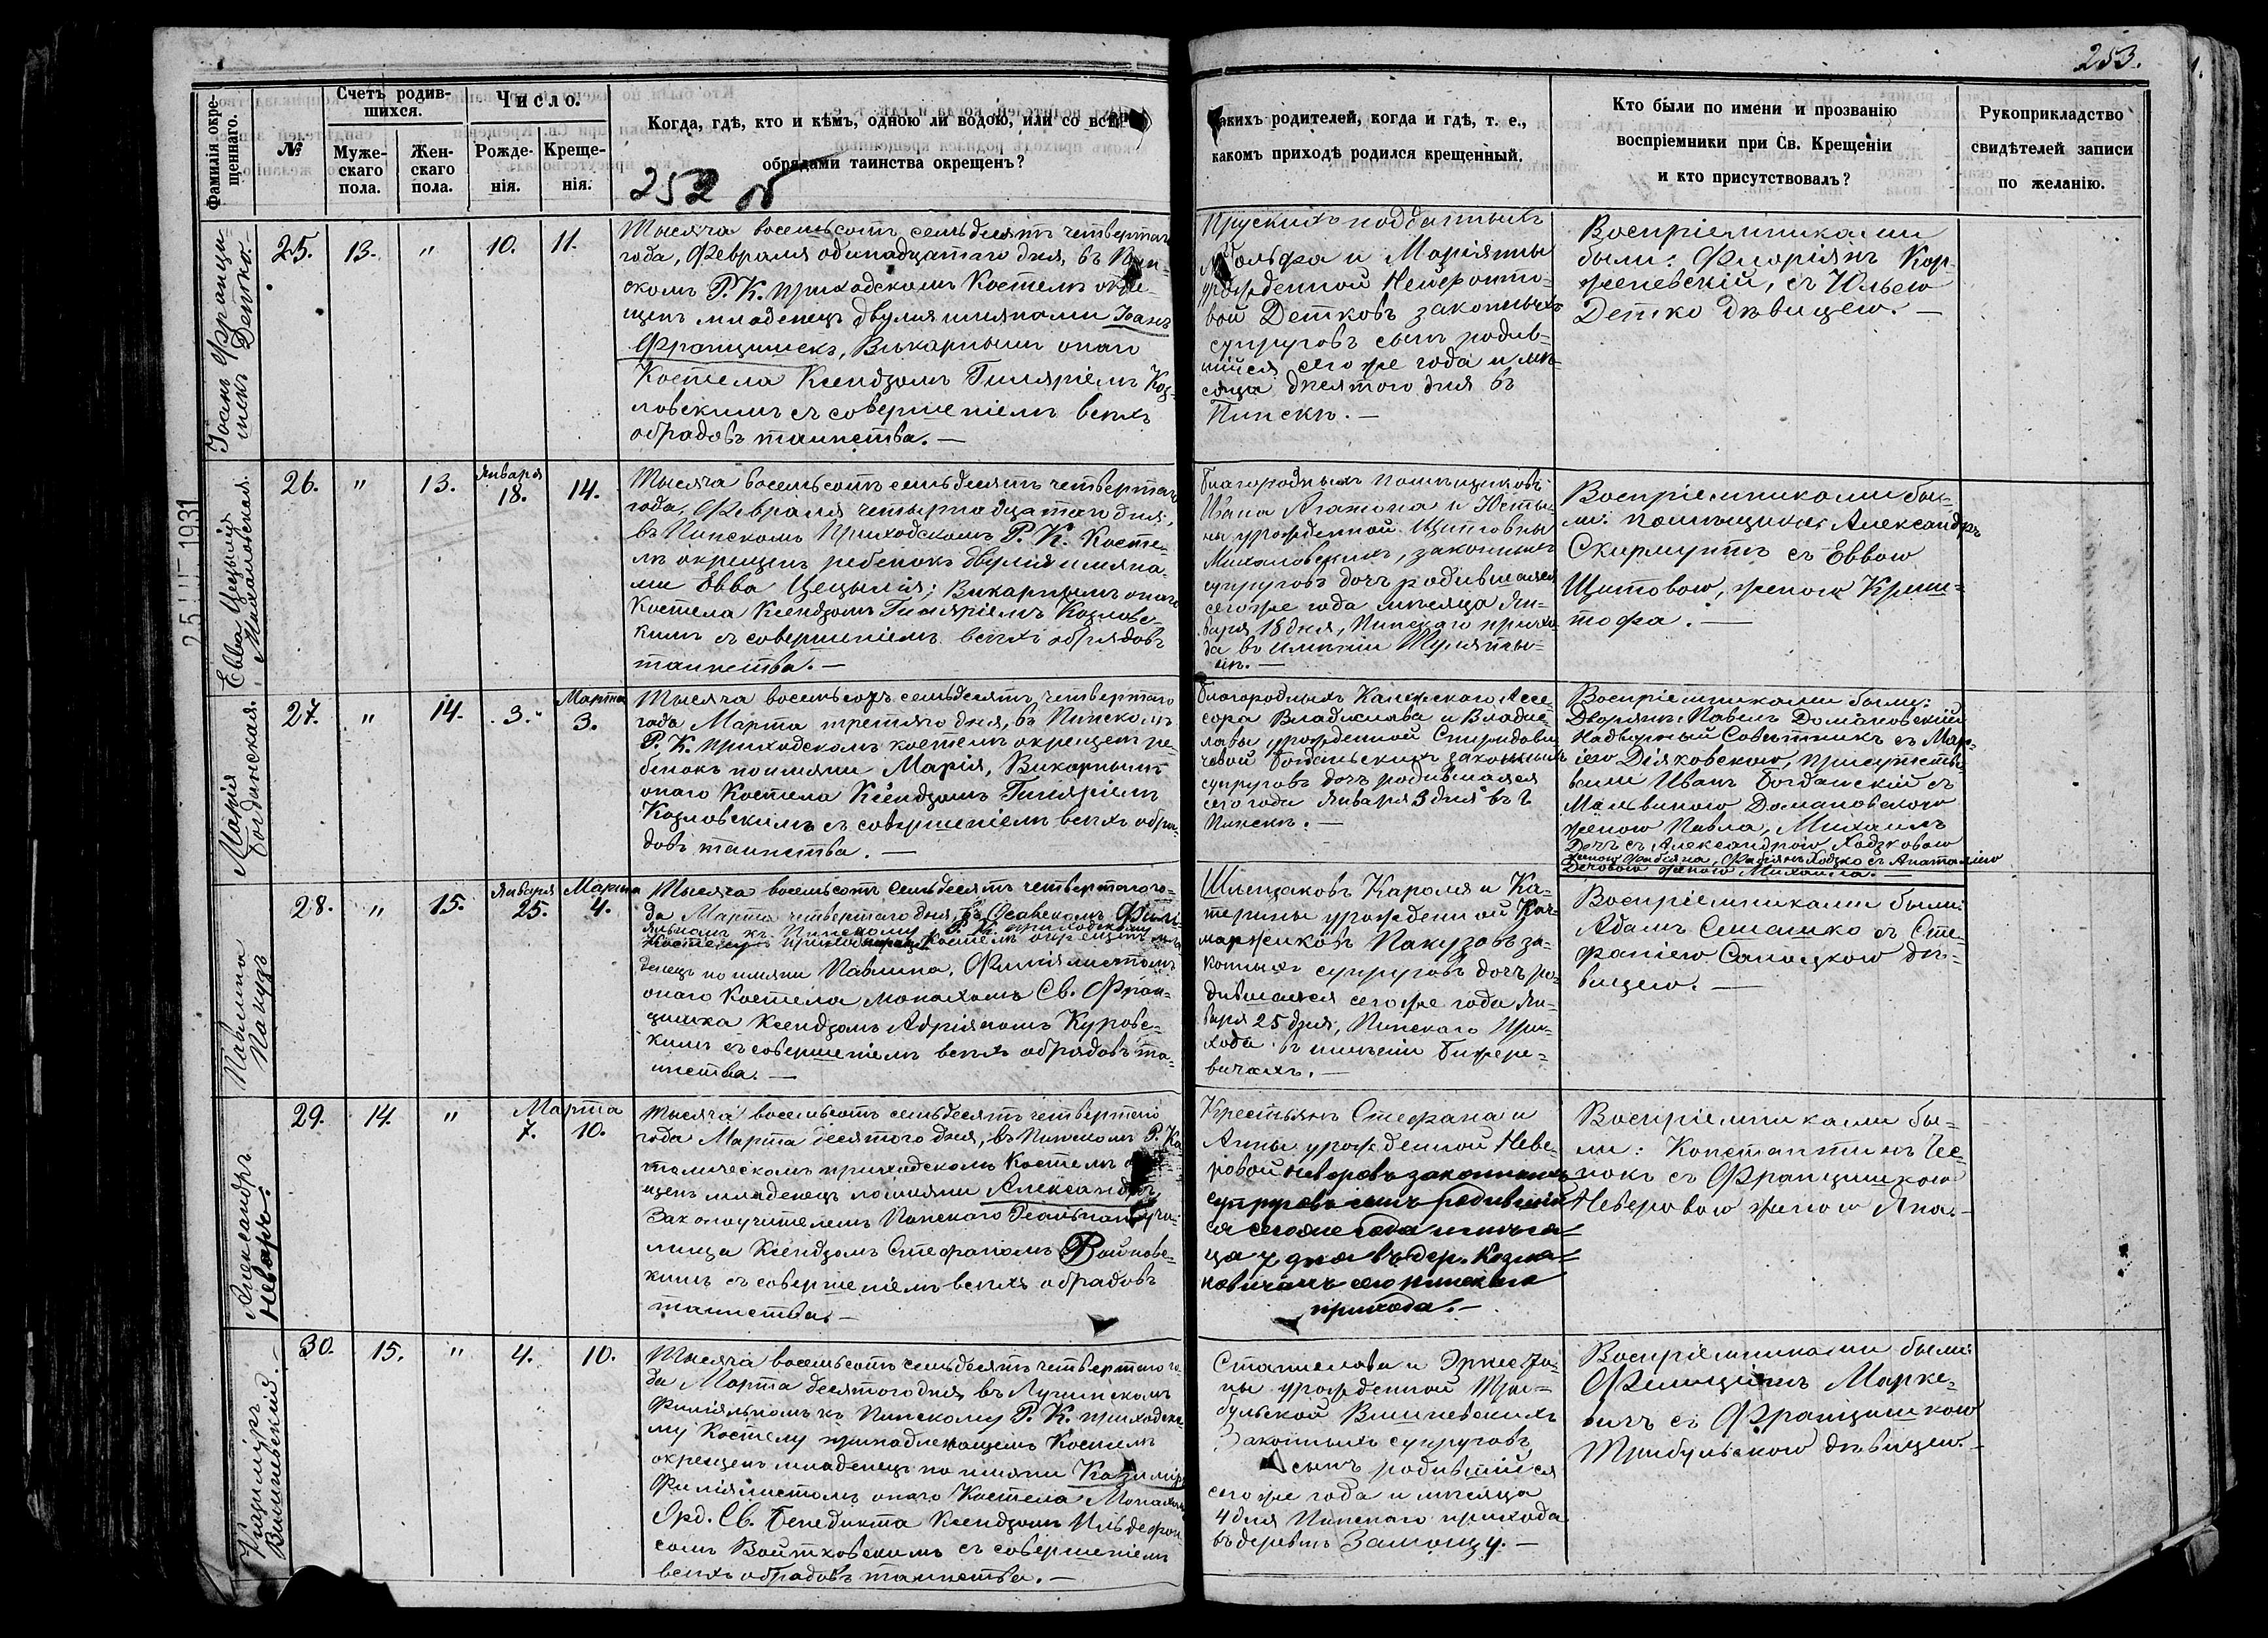 253.
Фамилія окре-
щеннаго.
№
Счетъ родив-
шихся.
Муже-
скаго
пола.
Жен-
скаго
пола.
Число.
Рожде-
нія.
Креще-
нія.
Когда, гдѣ, кто и кѣмъ, одною ли водою, или со всѣ
обрядами таинства окрещенъ?
252 об
акихъ родителей, когда и гдѣ, т. е.,
какомъ приходѣ родился крещенный.
Кто были по имени и прозванію
воспріемники при Св. Крещеніи
и кто присутствовалъ?
Рукоприкладство
свидѣтелей записи
по желанію.
Іоанъ Франци-
шекъ Детко.
25. 13. " 10. 11.
Тысяча восемьсотъ семьдесятъ четвертаго
года, Февраля одинадцатаго дня, въ Пин-
скомъ Р. К. приходскомъ Костелѣ окре-
щенъ младенецъ двумя имянами Іоанъ
Францишекъ, Викарнымъ онаго
Костела Ксендзомъ Гиляріемъ Коз-
ловскимъ съ совершеніемъ всѣхъ
обрядовъ таинства. —
Прускихъ подданныхъ
Адольфа и Маріянны
урожденной
вой Детковъ законныхъ
супруговъ сынъ родив-
шійся сего же года и мѣ-
сяца десятого дня въ
Пинскѣ. —
Воспріемниками
были: Флоріянъ Кор-
женевскій, съ Юлiею
Детко дѣвицею. —
25 LUT 1931
Евва Цецылія
Михаловская.
26. " 13. Января 18. 14.
Тысяча восемьсотъ семьдесятъ четвертаго
года, Февраля четырнадцатаго дня,
въ Пинскомъ Приходскомъ Р. К. Косте-
лѣ окрещенъ ребенокъ двумя имяна-
ми Евва Цецылія; Викарнымъ онаго
Костела Ксендзомъ Гиляріемъ Козловс-
кимъ съ совершеніемъ всѣхъ обрядовъ
таинства. —
Благородныхъ помѣщиковъ
Ивана Агатона и Юсты-
ны урожденной Щитовны
Михаловскихъ, законныхъ
супруговъ дочъ родившаяся
сего же года мѣсяца Ян-
варя 18 дня, Пинскаго прихо-
да въ имѣніи
Воспріемниками бы-
ли: помѣщикъ Александръ
Скирмунтъ съ Еввою
Щитовою, женою Криш-
тофа. —
Марія
Богданская.
27. " 14. 3. Марта 3.
Тысяча восемьсотъ семьдесятъ четвертаго
года Марта третяго дня, въ Пинскомъ
Р. К. приходскомъ костелѣ окрещенъ ре-
бенокъ поимяни Марія, Викарнымъ
онаго Костела Ксендзомъ Гиляріемъ
Козловскимъ съ совершеніемъ всѣхъ обря-
довъ таинства. —
Благородныхъ Асе-
сора Владислава и Владис-
лавы урожденной Спиридови-
човой Богданскихъ законныхъ
супруговъ дочъ родившаяся
сего года Января 3 дня въ г
Пинскѣ. —
Воспріемниками были:
Дворянъ Павелъ Домановскій
Надворный Совѣтникъ съ Мар-
іею Дяковскою, присутство-
вали Иванъ Богданскій съ
Мальвиною Домановскою
женою Павла, Михаилъ
съ Александрою Ходзковою
женою Фабіяна, съ
женою Михаила. —
Павлина
Пакузъ
28. " 15. Января 25. Марта 4.
Тысяча восемьсотъ семьдесятъ четвертаго го-
да Марта четвертаго дня, въ Осавскомъ Филі-
яльномъ къ Пинскому Р. К. приходскому
Костелу Костелѣ окрещенъ мла-
денецъ по имяни Павлина, Филіялистомъ
онаго Костела монахомъ Св. Фран-
цишка Ксендзомъ Адріяномъ Куровс-
кимъ съ совершеніемъ всѣхъ обрядовъ та-
инства. —
Шлещаковъ Кароля и Ка-
терины урожденной
Пакузовъ за-
конныхъ супруговъ дочъ ро-
дившаяся сего же года Ян-
варя 25 дня, Пинскаго При-
хода въ имѣніи Бижере-
вичахъ. —
Воспріемниками были:
Адамъ Семашко съ Сте-
фаніею Сапоцкою дѣ-
вицею. —
Александръ
Неверъ.
29. 14. " Марта 7. 10.
Тысяча восемьсотъ семьдесятъ четвертаго
года Марта десятого дня, въ Пинскомъ Р. Ка
толическомъ приходскомъ Костелѣ окре-
щенъ младенецъ поимяни Александръ
Законоучителемъ Пинскаго Реальнаго учи-
лища Ксендзомъ Стефаномъ Войновс-
кимъ съ совершеніемъ всѣхъ обрядовъ
таинства. —
Крестьянъ Стефана и
Анны урожденной Неве-
ровой Неверовъ законныхъ
супруговъ сынъ родившій
ся сегоже года и мѣся-
ца 7 дня въ дер. Козля-
ковичахъ сего пинскаго
прихода. —
Воспріемниками бы-
ли: Константинъ Чес-
нокъ съ Францишкою
Неверовою женою Яна. —
Казиміръ
Вишневскій. —
30. 15. " 4. 10.
Тысяча восемьсотъ семьдесятъ четвертаго го-
да Марта десятого дня, въ Лунинскомъ
Филіяльномъ къ Пинскому Р. К. приходско-
му Костелу принадлежащемъ Костелѣ
окрещенъ младенецъ по имяни Казиміръ
Филіялистомъ онаго Костела Монахомъ
Орд. Св. Бенедикта Ксендзомъ Ильдефон
сомъ Войтховскимъ съ совершеніемъ
всѣхъ обрядовъ таинства. —
Станислава и Эрнести-
ны урожденной Трыс-
бульской Вишневскихъ
Законныхъ супруговъ
сынъ родившійся
сего же года и мѣсяца
4 дня Пинскаго прихода
въ деревнѣ Замошу. —
Воспріемниками были:
Фелиціянъ Марке-
вичъ съ Францишкою
Трибульскою дѣвицею. —